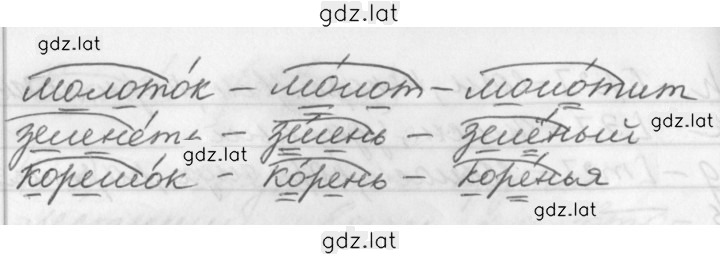 gdz.lat
gdz.lat
молото́к – мо́лот – моло́тит
зелене́ть – зе́лень – зелёный
gdz.lat
gdz.lat
корешо́к – ко́рень – коре́нья
gdz.lat
gdz.lat